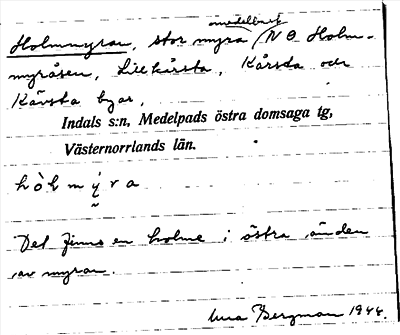 Holmmyran, stor myra omedelbart N O Holm-
myråsen, Lillkårsta, Kårsta och
Kävsta byar,
Indals s:n, Medelpads östra domsaga tg,
Västernorrlands län.
hòlmỳra
Det finns en holme i östra änden
av myran.
Bergman 1944.